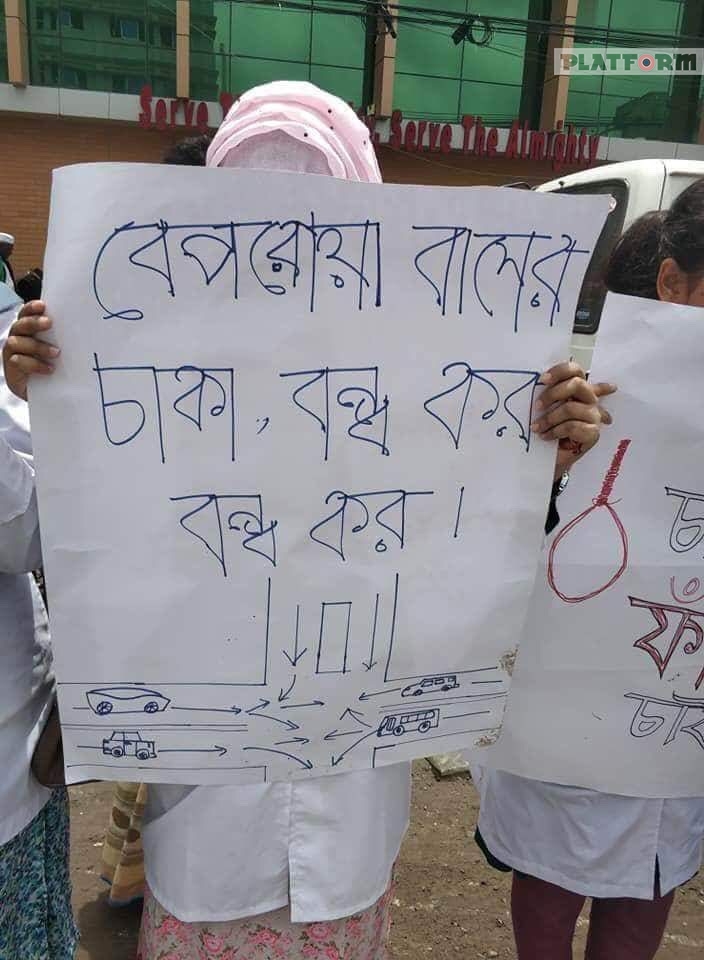 PLATFORM
Serve Serve The Almighty
বেপরোয়া বাসের
চাকা, বন্ধ কর
বন্ধ কর।
চাই